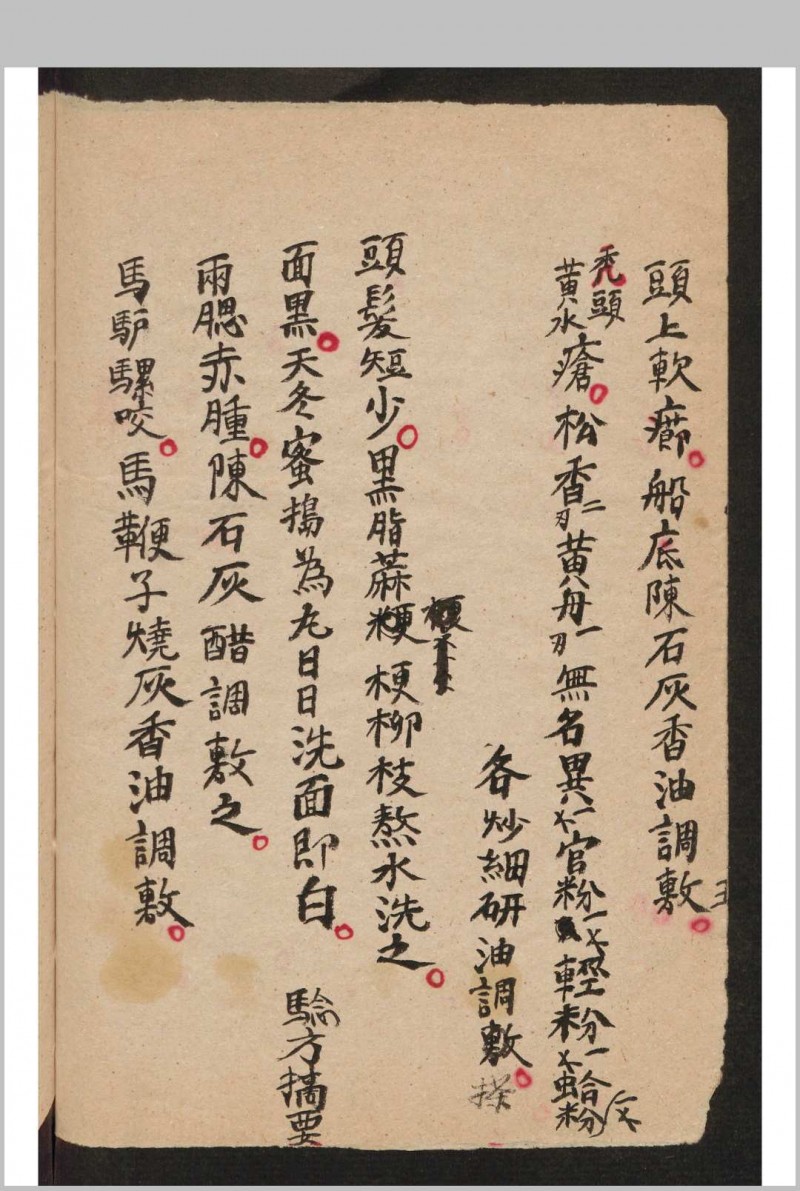 頭上軟癤船底陳石灰香油調敷
禿頭
黃水瘡松香二刃黃丹一刃無名異一官粉一輕粉一蛤粉
各炒細研油調敷
頭髮短少黑脂蔴粳梗柳枝熬水洗之
面黑天冬蜜搗為丸日日洗面即白
兩腮赤腫陳石灰醋調敷之
馬驴騾咬馬鞭子燒灰香油調敷
驗方摘要